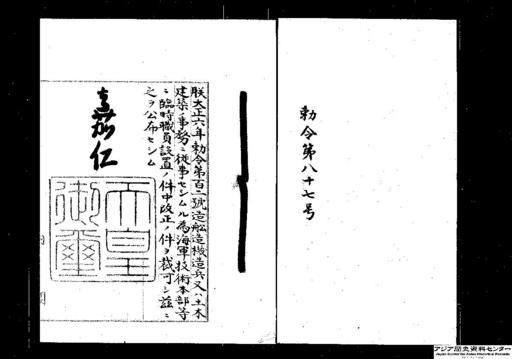 勅令第八十七号
朕大正六年勅令第百二號造船造機造兵又ハ土木
建築ノ事務ニ從事セシムル為海軍技術本部等
ニ臨時職員設置ノ件中改正ノ件ヲ裁可シ茲ニ
之ヲ公布セシム
嘉仁
天皇
御璽
アジア歴史資料センター
Japan Center for Asian Historical Records